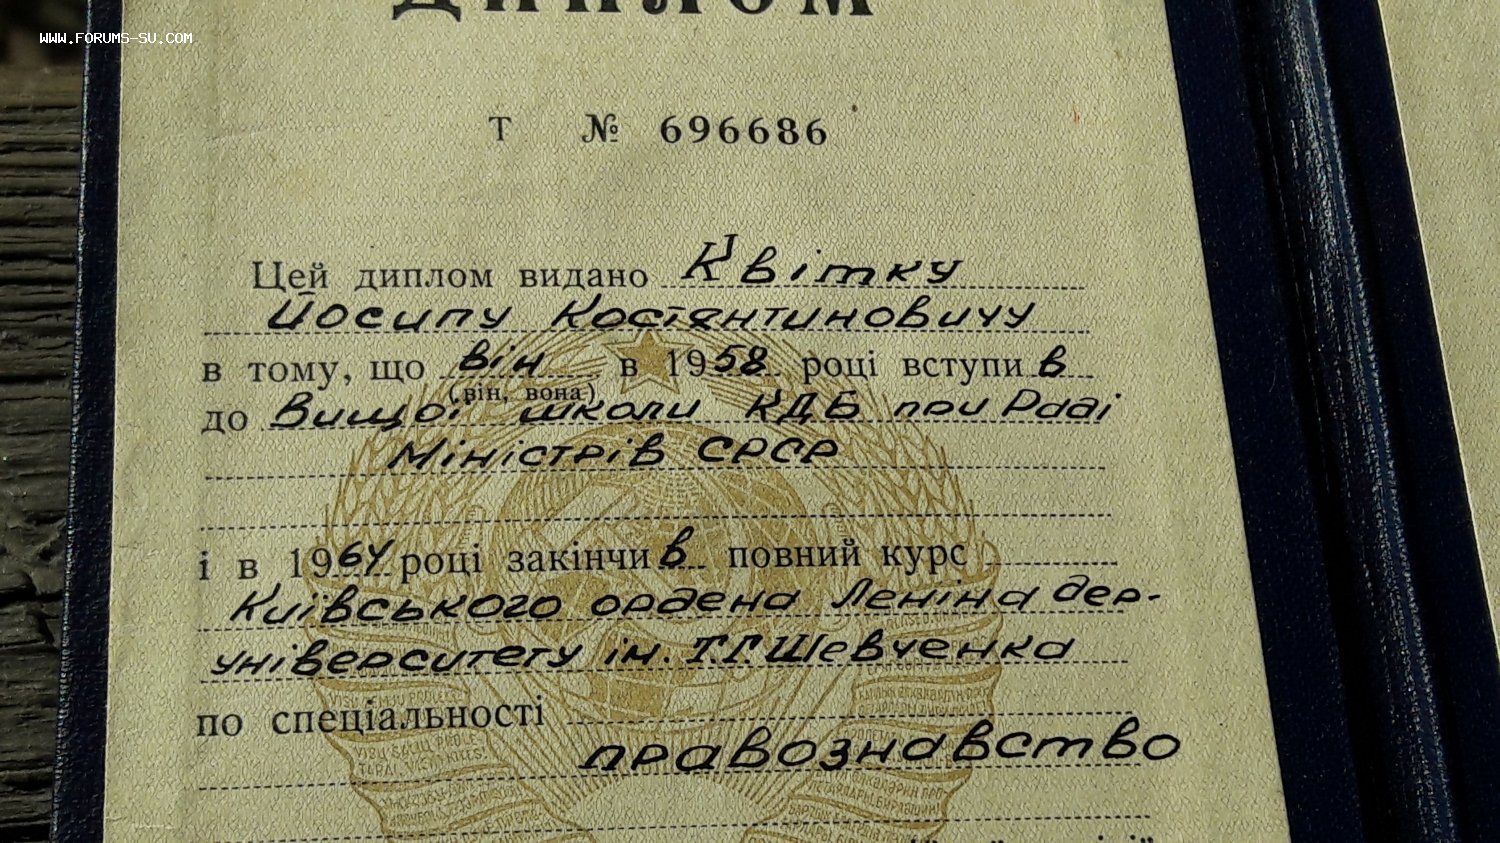 WWW.FORUMS-SU.COM
ДИПЛОМ
Т № 696686
Цей диплом видано Квітку
Йосипу Костянтиновичу
в тому, що він в 1958 році вступив
(він, вона)
до Вищої школи КДБ при Раді
Міністрів СРСР
і в 1964 році закінчив повний курс
Київського ордена Леніна дер-
університету ім. Т.Г. Шевченка
по спеціальності
правознавство